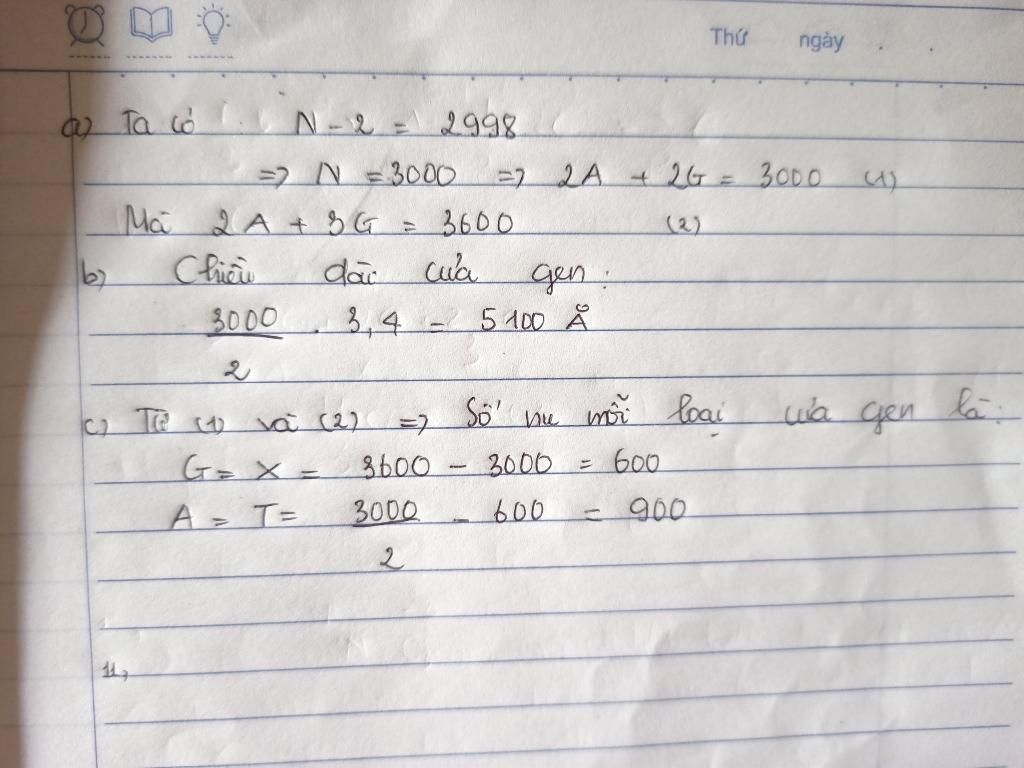 Thứ ngày . .
a) Ta có : N - 2 = 2998
=> N = 3000 => 2A + 2G = 3000 (1)
Mà 2A + 3G = 3600 (2)
b) Chiều dài của gen :
3000/2 . 3,4 = 5100 Å
c) Từ (1) và (2) => Số nu mỗi loại của gen là :
G = X = 3600 - 3000 = 600
A = T = 3000/2 - 600 = 900
11,